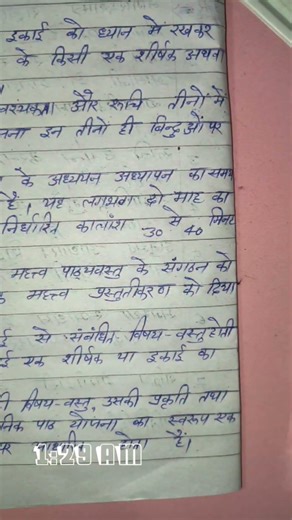 इकाई को ध्यान में रखकर
के किसी एक शीर्षक अथवा
और रूचि तीनों में
इन तीनों ही बिन्दुओं पर
के अध्ययन अध्यापन का समय
है, यह लगभग दो माह का
निर्धारित कालांश 30 से 40 मिनट
महत्व पाठ्यवस्तु के संगठन को
महत्व प्रस्तुतीकरण को दिया
से संबंधित विषय-वस्तु होती
एक शीर्षक या इकाई का
विषय-वस्तु, उसकी प्रकृति तथा
पाठ योजना का स्वरूप एक
होता है।
1:29 AM